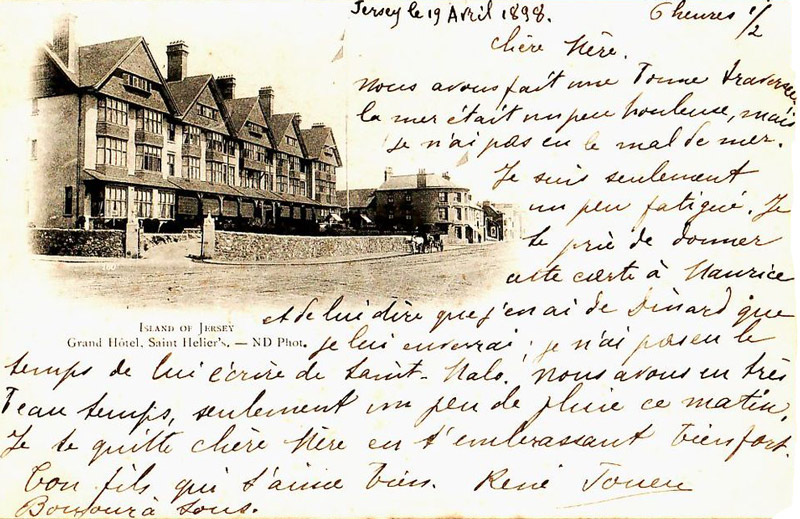 Jersey le 19 Avril 1898. 6 heures 1/2
Chère Mère.
Nous avons fait une bonne traversée
la mer était un peu houleuse, mais
je n'ai pas eu le mal de mer.
Je suis seulement
un peu fatigué. Je
te prie de donner
cette carte à Maurice
et de lui dire que j'en ai de Dinard que
je lui enverrai ; je n'ai pas eu le
temps de lui écrire de Saint-Malo. Nous avons eu très
beau temps, seulement un peu de pluie ce matin,
Je te quitte chère Mère en t'embrassant bien fort.
Ton fils qui t'aime bien. René
Bonjour à tous.
ISLAND OF JERSEY
Grand Hôtel, Saint Helier's. — ND Phot.